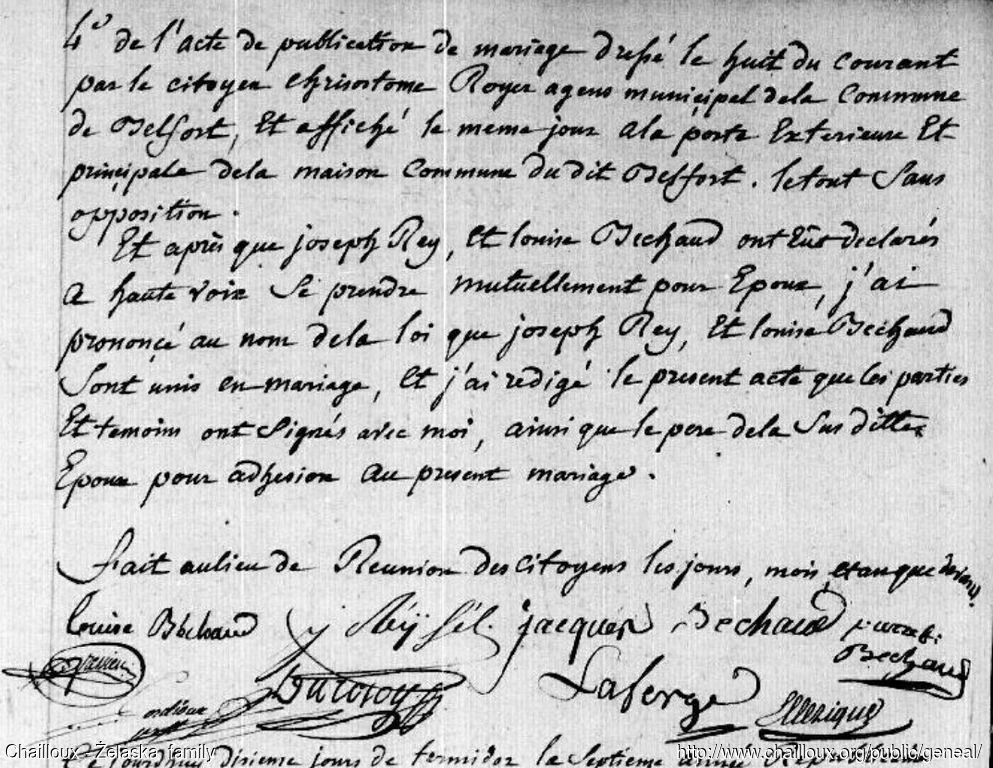 4° de l'acte de publication de mariage dressé le huit du courant
par le citoyen Chrisostome Royer agens municipal dela Commune
de Belfort, Et affiché le meme jour ala porte Exterieure Et
principale dela maison Commune du dit Belfort. le tout Sans
opposition.
Et après que joseph Rey, Et louise Bechaud ont Eus declarés
a haute voix Se prendre mutuellement pour Epoux, j'ai
prononcé au nom dela loi que joseph Rey, Et louise Bechaud
Sont unis en mariage, Et j'ai redigé le present acte que les parties
Et temoins ont Signés avec moi, ainsi que le pere dela Sus ditte
Epoux pour adhesion au present mariage.
Fait au lieu de Reunion des Citoyens les jours, mois, et an que
Louise Béchaud jacques Bechaud
Bechaud
Laferge
disieme jours de termidor la Septieme année
Chailloux - Żelaska family
http://www.chailloux.org/public/geneal/